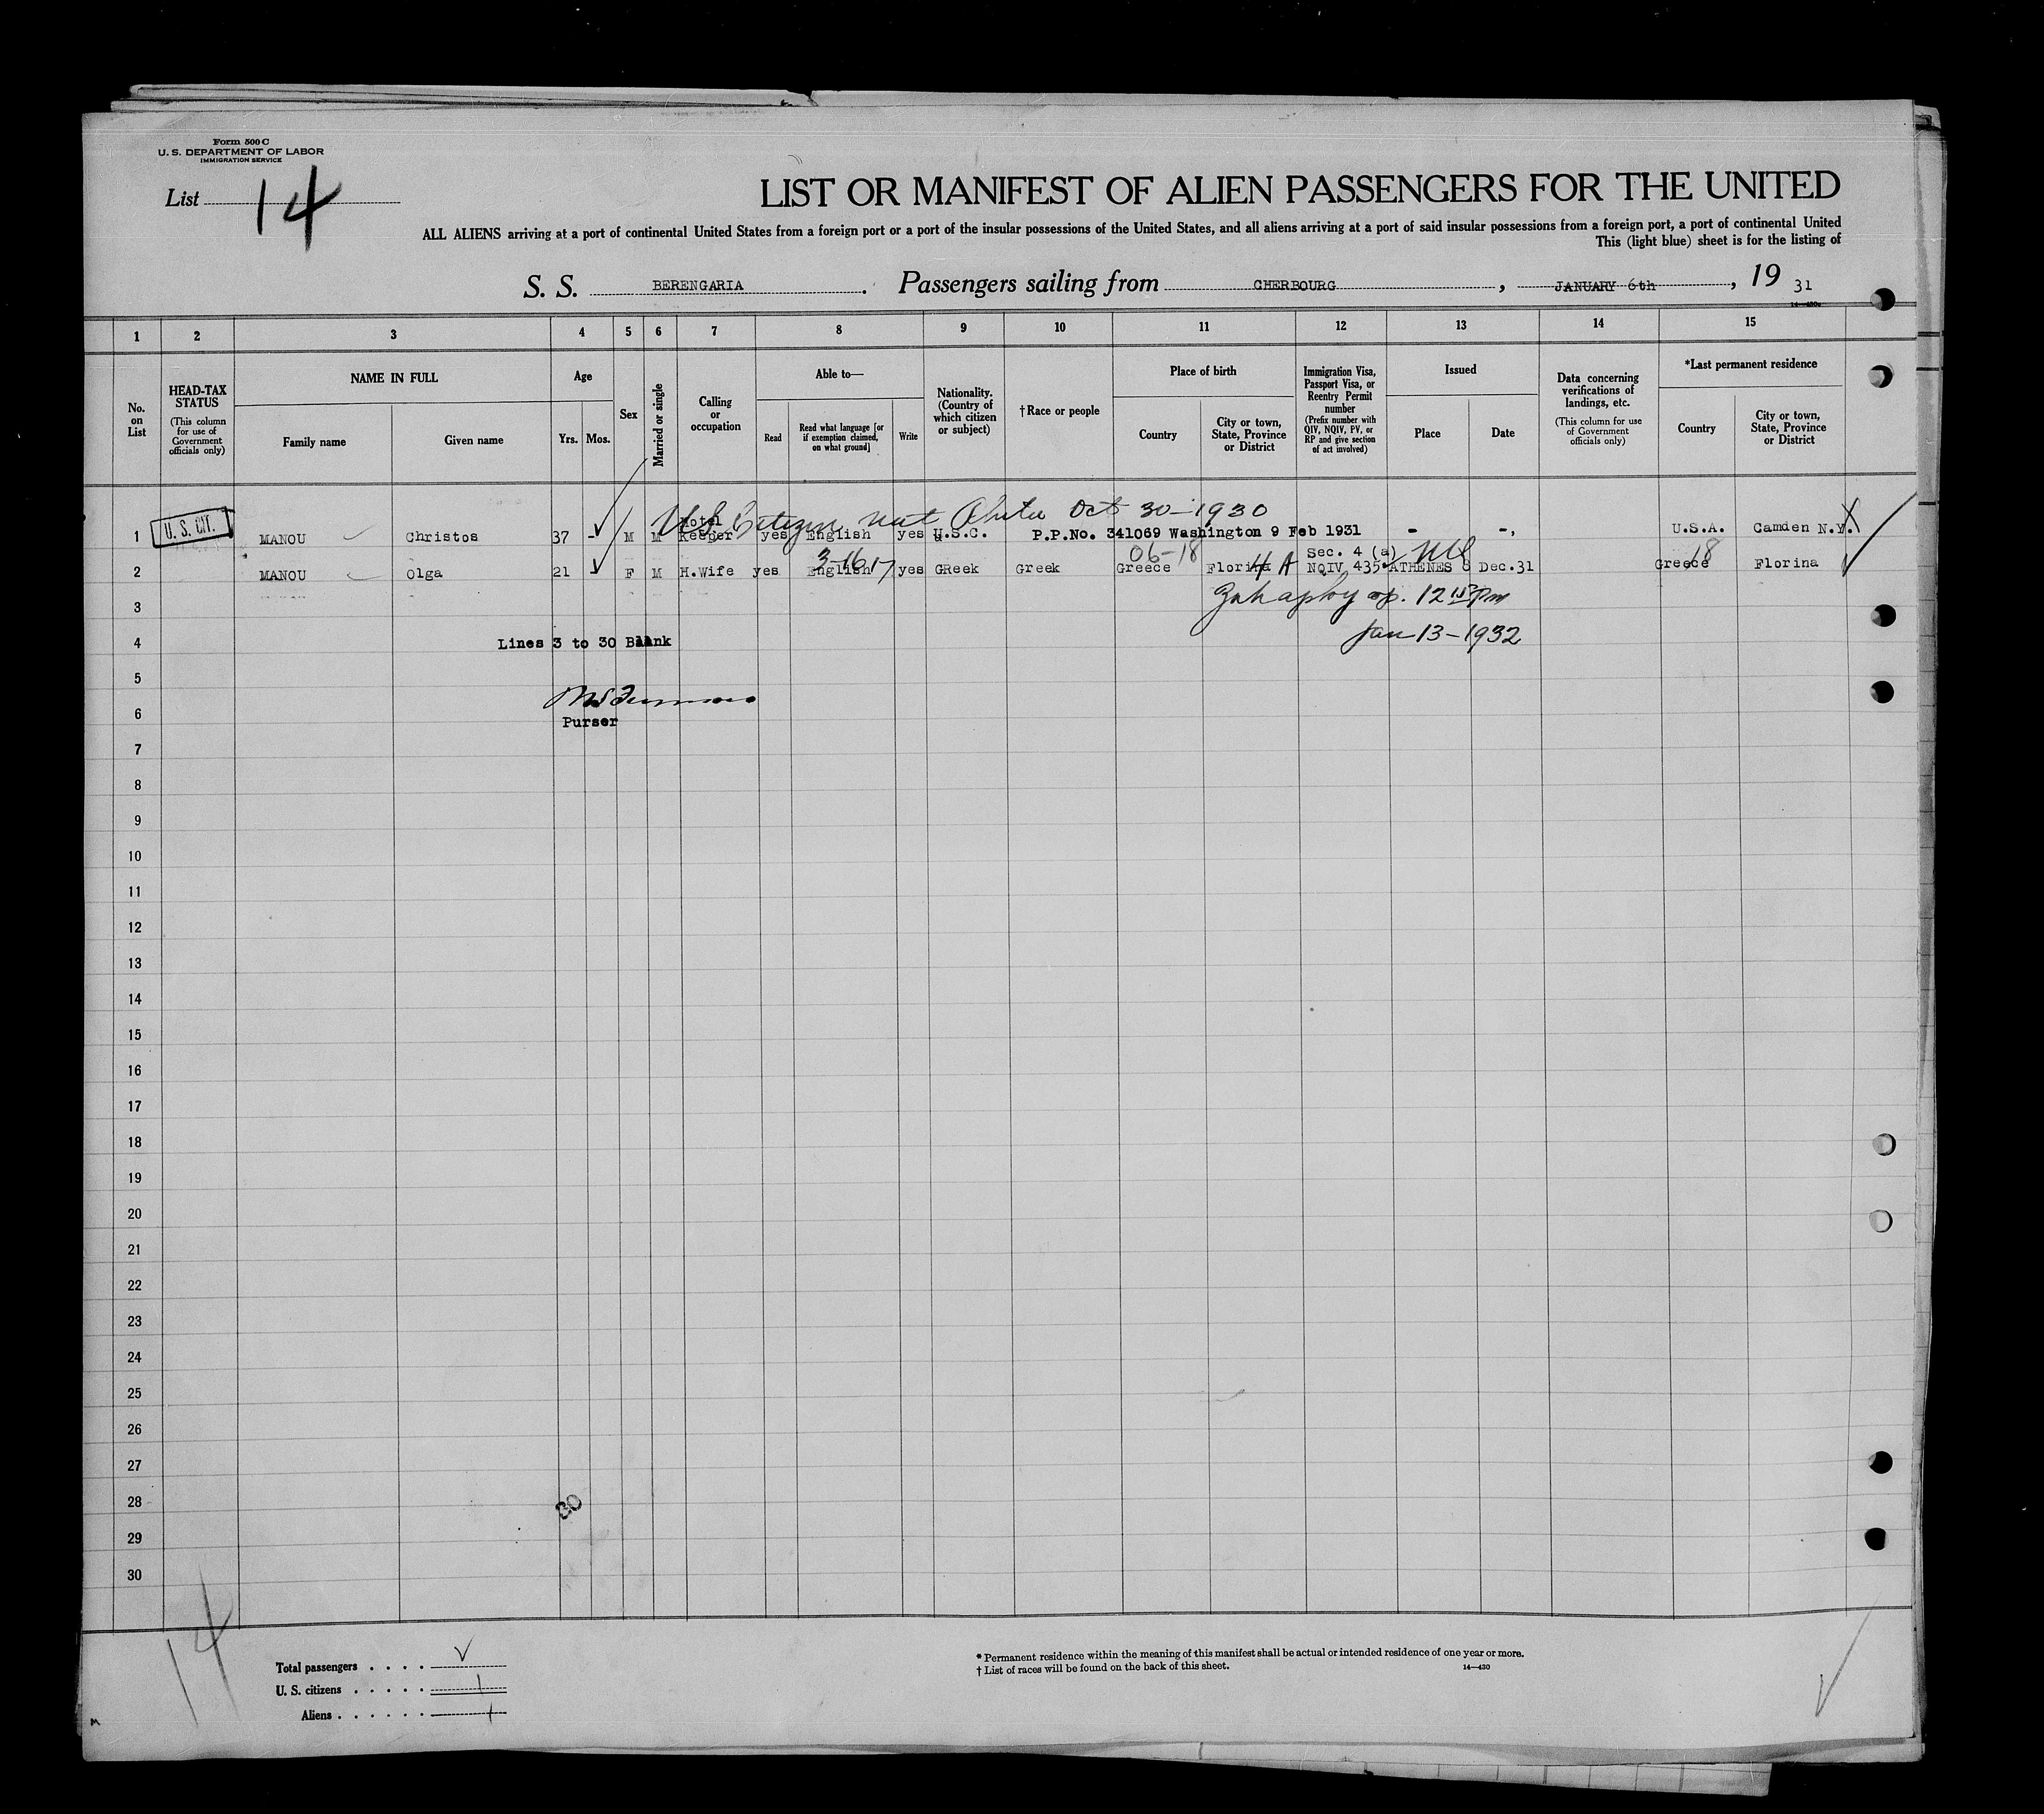 Form 500 C
U. S. DEPARTMENT OF LABOR
IMMIGRATION SERVICE
List 14
LIST OR MANIFEST OF ALIEN PASSENGERS FOR THE UNITED
ALL ALIENS arriving at a port of continental United States from a foreign port or a port of the insular possessions of the United States, and all aliens arriving at a port of said insular possessions from a foreign port, a port of continental United
This (light blue) sheet is for the listing of
S. S. BERENGARIA. Passengers sailing from CHERBOURG, JANUARY 6th, 19 31
14—430
1 2 3 4 5 6 7 8 9 10 11 12 13 14 15
No. on List
HEAD-TAX STATUS (This column for use of Government officials only)
NAME IN FULL
Family name
Given name
Age
Yrs. Mos.
Sex
Married or single
Calling or occupation
Able to—
Read
Read what language [or if exemption claimed, on what ground]
Write
Nationality. (Country of which citizen or subject)
†Race or people
Place of birth
Country
City or town, State, Province or District
Immigration Visa, Passport Visa, or Reentry Permit number (Prefix number with QIV, NQIV, PV, or RP and give section of act involved)
Issued
Place
Date
Data concerning verifications of landings, etc. (This column for use of Government officials only)
*Last permanent residence
Country
City or town, State, Province or District
U.S. Citizen nat Oct 30-1930
1 U. S. CIT. MANOU Christos 37 - M M Hotel Keeper yes English yes U.S.C. P.P.No. 341069 Washington 9 Feb 1931 - -, U.S.A. Camden N.Y.
3-1617 06-18 4 A Sec. 4 (a) 18
2 MANOU Olga 21 F M H.Wife yes English yes GReek Greek Greece Florina NQIV 435 ATHENES 8 Dec.31 Greece Florina
3 12 15 Pm
4 Lines 3 to 30 Blank Jan-13-1932
5
6 Purser
7
8
9
10
11
12
13
14
15
16
17
18
19
20
21
22
23
24
25
26
27
28 30
29
30
14
Total passengers . . . .
U. S. citizens . . . . . 1
Aliens . . . . . . 1
* Permanent residence within the meaning of this manifest shall be actual or intended residence of one year or more.
† List of races will be found on the back of this sheet.
14—430